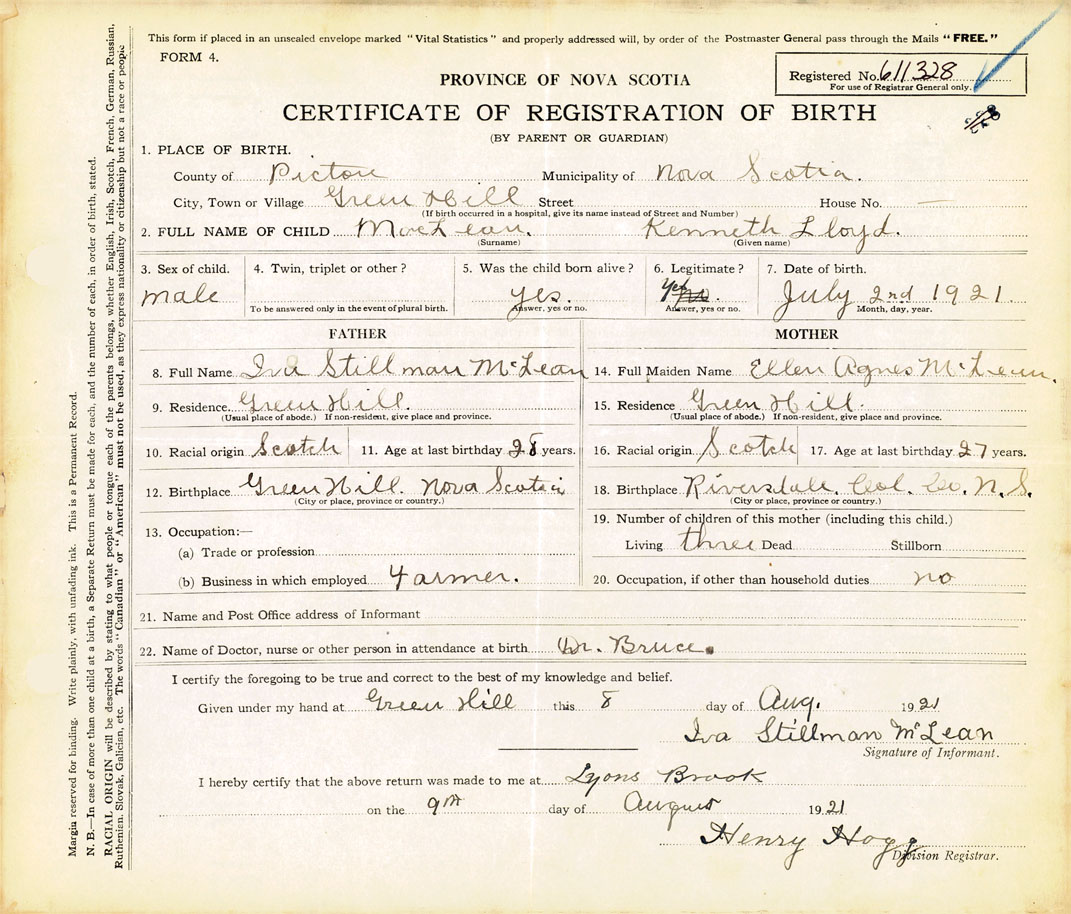 This form if placed in an unsealed envelope marked "Vital Statistics" and properly addressed will, by order of the Postmaster General pass through the Mails "FREE."
FORM 4.
Registered No. 611328
For use of Registrar General only.
PROVINCE OF NOVA SCOTIA
CERTIFICATE OF REGISTRATION OF BIRTH
(BY PARENT OR GUARDIAN)
1. PLACE OF BIRTH.
County of Pictou Municipality of Nova Scotia.
City, Town or Village Green Hill Street House No. —
(If birth occurred in a hospital, give its name instead of Street and Number)
2. FULL NAME OF CHILD MacLean. Kenneth Lloyd.
(Surname) (Given name)
3. Sex of child. 4. Twin, triplet or other? 5. Was the child born alive? 6. Legitimate? 7. Date of birth.
male yes. Yes no. July 2nd 1921.
To be answered only in the event of plural birth. Answer, yes or no. Answer, yes or no. Month, day, year.
FATHER MOTHER
8. Full Name Iva Stillman McLean 14. Full Maiden Name Ellen Agnes McLean.
9. Residence Green Hill. 15. Residence Green Hill.
(Usual place of abode.) If non-resident, give place and province. (Usual place of abode.) If non-resident, give place and province.
10. Racial origin Scotch 11. Age at last birthday 28 years. 16. Racial origin Scotch 17. Age at last birthday 27 years.
12. Birthplace Green Hill. Nova Scotia 18. Birthplace Riversdale. Col. Co. N.S.
(City or place, province or country.) (City or place, province or country.)
13. Occupation:— 19. Number of children of this mother (including this child.)
(a) Trade or profession Living three Dead Stillborn
(b) Business in which employed Farmer. 20. Occupation, if other than household duties no
21. Name and Post Office address of Informant
22. Name of Doctor, nurse or other person in attendance at birth Dr. Bruce.
I certify the foregoing to be true and correct to the best of my knowledge and belief.
Given under my hand at Green Hill this 8 day of Aug. 1921
Iva Stillman McLean
Signature of Informant.
I hereby certify that the above return was made to me at Lyons Brook
on the 9th day of August 1921
Henry Hogg
Division Registrar.
Margin reserved for binding. Write plainly, with unfading ink. This is a Permanent Record.
N. B.—In case of more than one child at a birth, a Separate Return must be made for each, and the number of each, in order of birth, stated.
RACIAL ORIGIN will be described by stating to what people or tongue each of the parents belongs, whether English, Irish, Scotch, French, German, Russian,
Ruthenian, Slovak, Galician, etc. The words "Canadian" or "American" must not be used, as they express nationality or citizenship but not a race or people